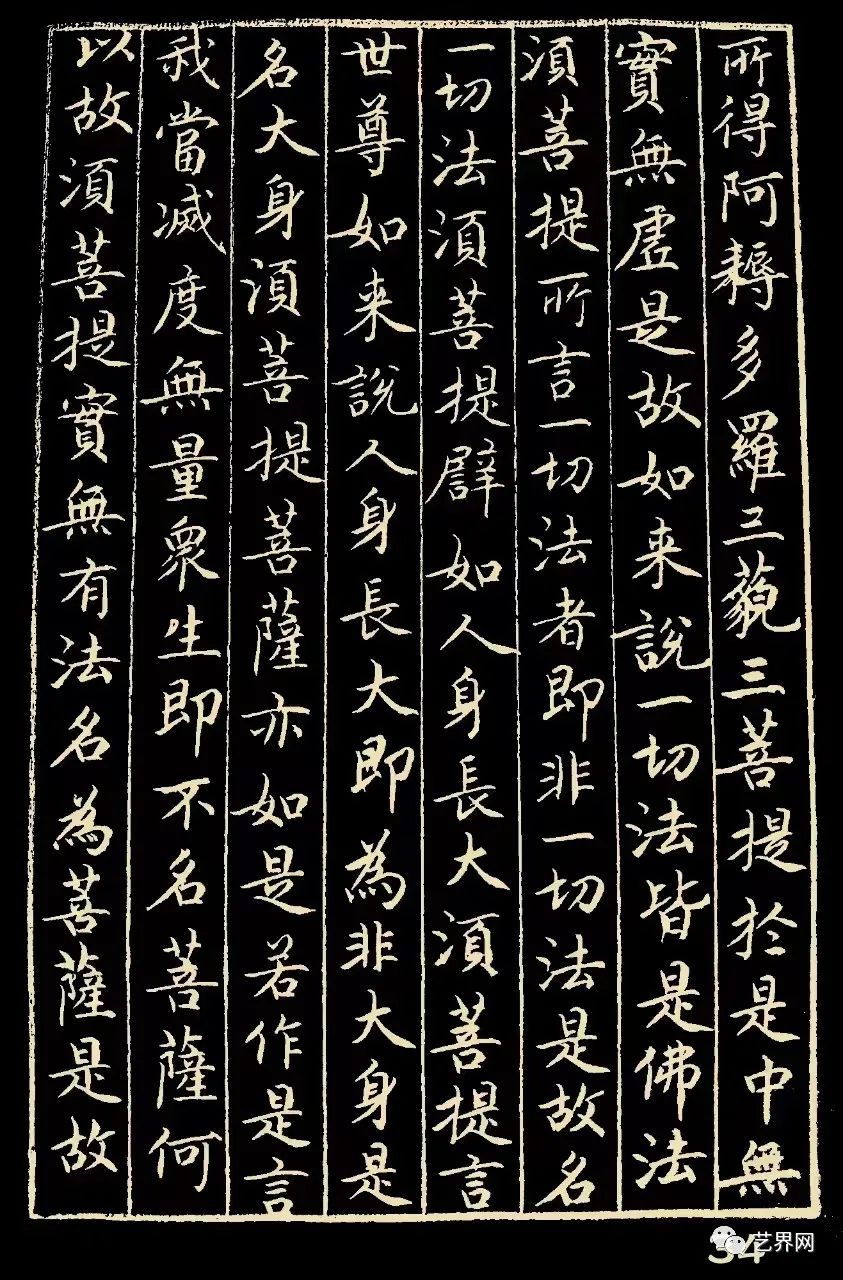 所得阿耨多羅三藐三菩提於是中無
實無虛是故如来說一切法皆是佛法
須菩提所言一切法者即非一切法是故名
一切法須菩提譬如人身長大須菩提言
世尊如来說人身長大即為非大身是
名大身須菩提菩薩亦如是若作是言
我當滅度無量眾生即不名菩薩何
以故須菩提實無有法名為菩薩是故
34
艺界网